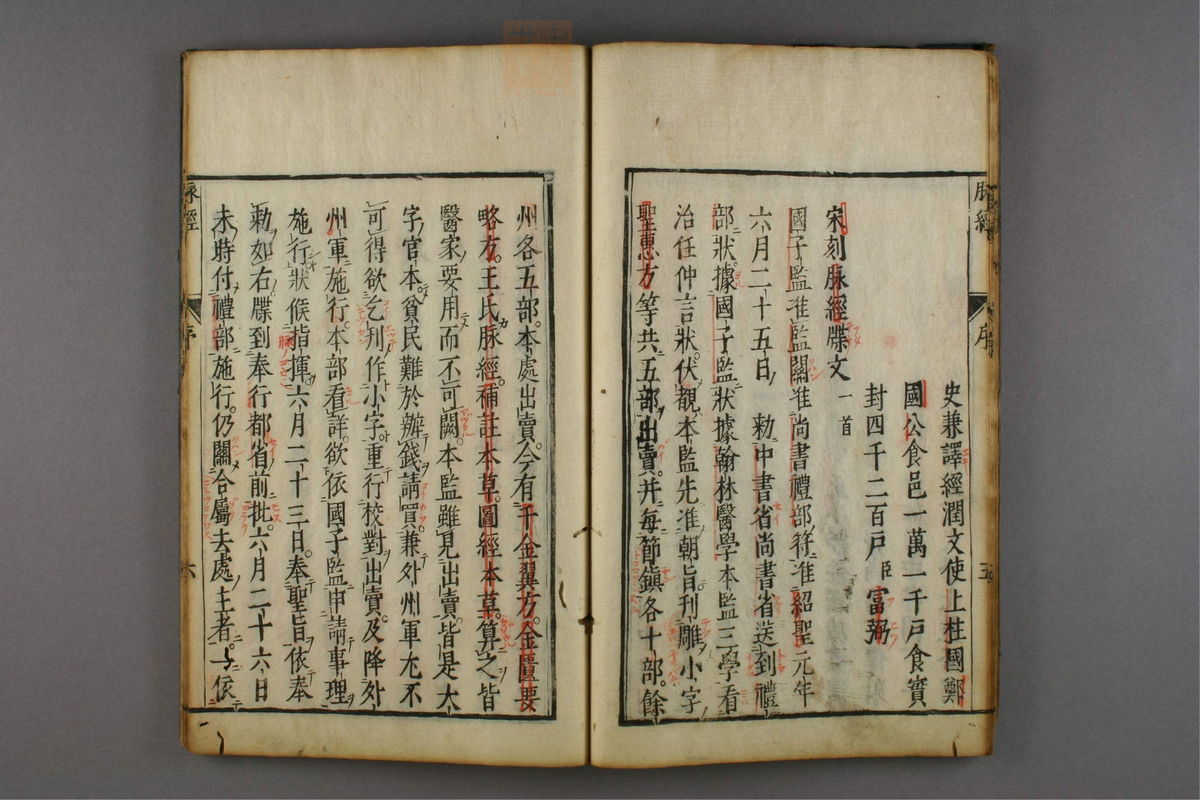 史兼譯經潤文使上柱國鄭
國公食邑一萬一千戸食實
封四千二百戸臣富弼
宋刻脉經牒文一首
國子監准監關准尚書禮部符准紹聖元年
六月二十五日勅中書省尚書省送到禮
部狀據國子監狀據翰林醫學本監三學看
治任仲言狀伏覩本監先准朝旨刊雕小字
聖惠方等共五部出賣并毎節鎮各十部餘
州各五部本處出賣今有千金翼方金匱要
略方王氏脉經補註本草圖經本草等之皆
醫家要用而不可闕本監雖見出賣皆是大
字官本貧民難於辦錢請買兼外州軍尢不
可得欲乞刋作小字重行校對出賣及降外
州軍施行本部看詳欲依國子監申請事理
施行狀候指揮六月二十三日奉聖旨依奉
勅如右牒到奉行都省前批六月二十六日
未時付禮部施行仍關合屬去處主者一依
脉經
序
五
脉經
序
六